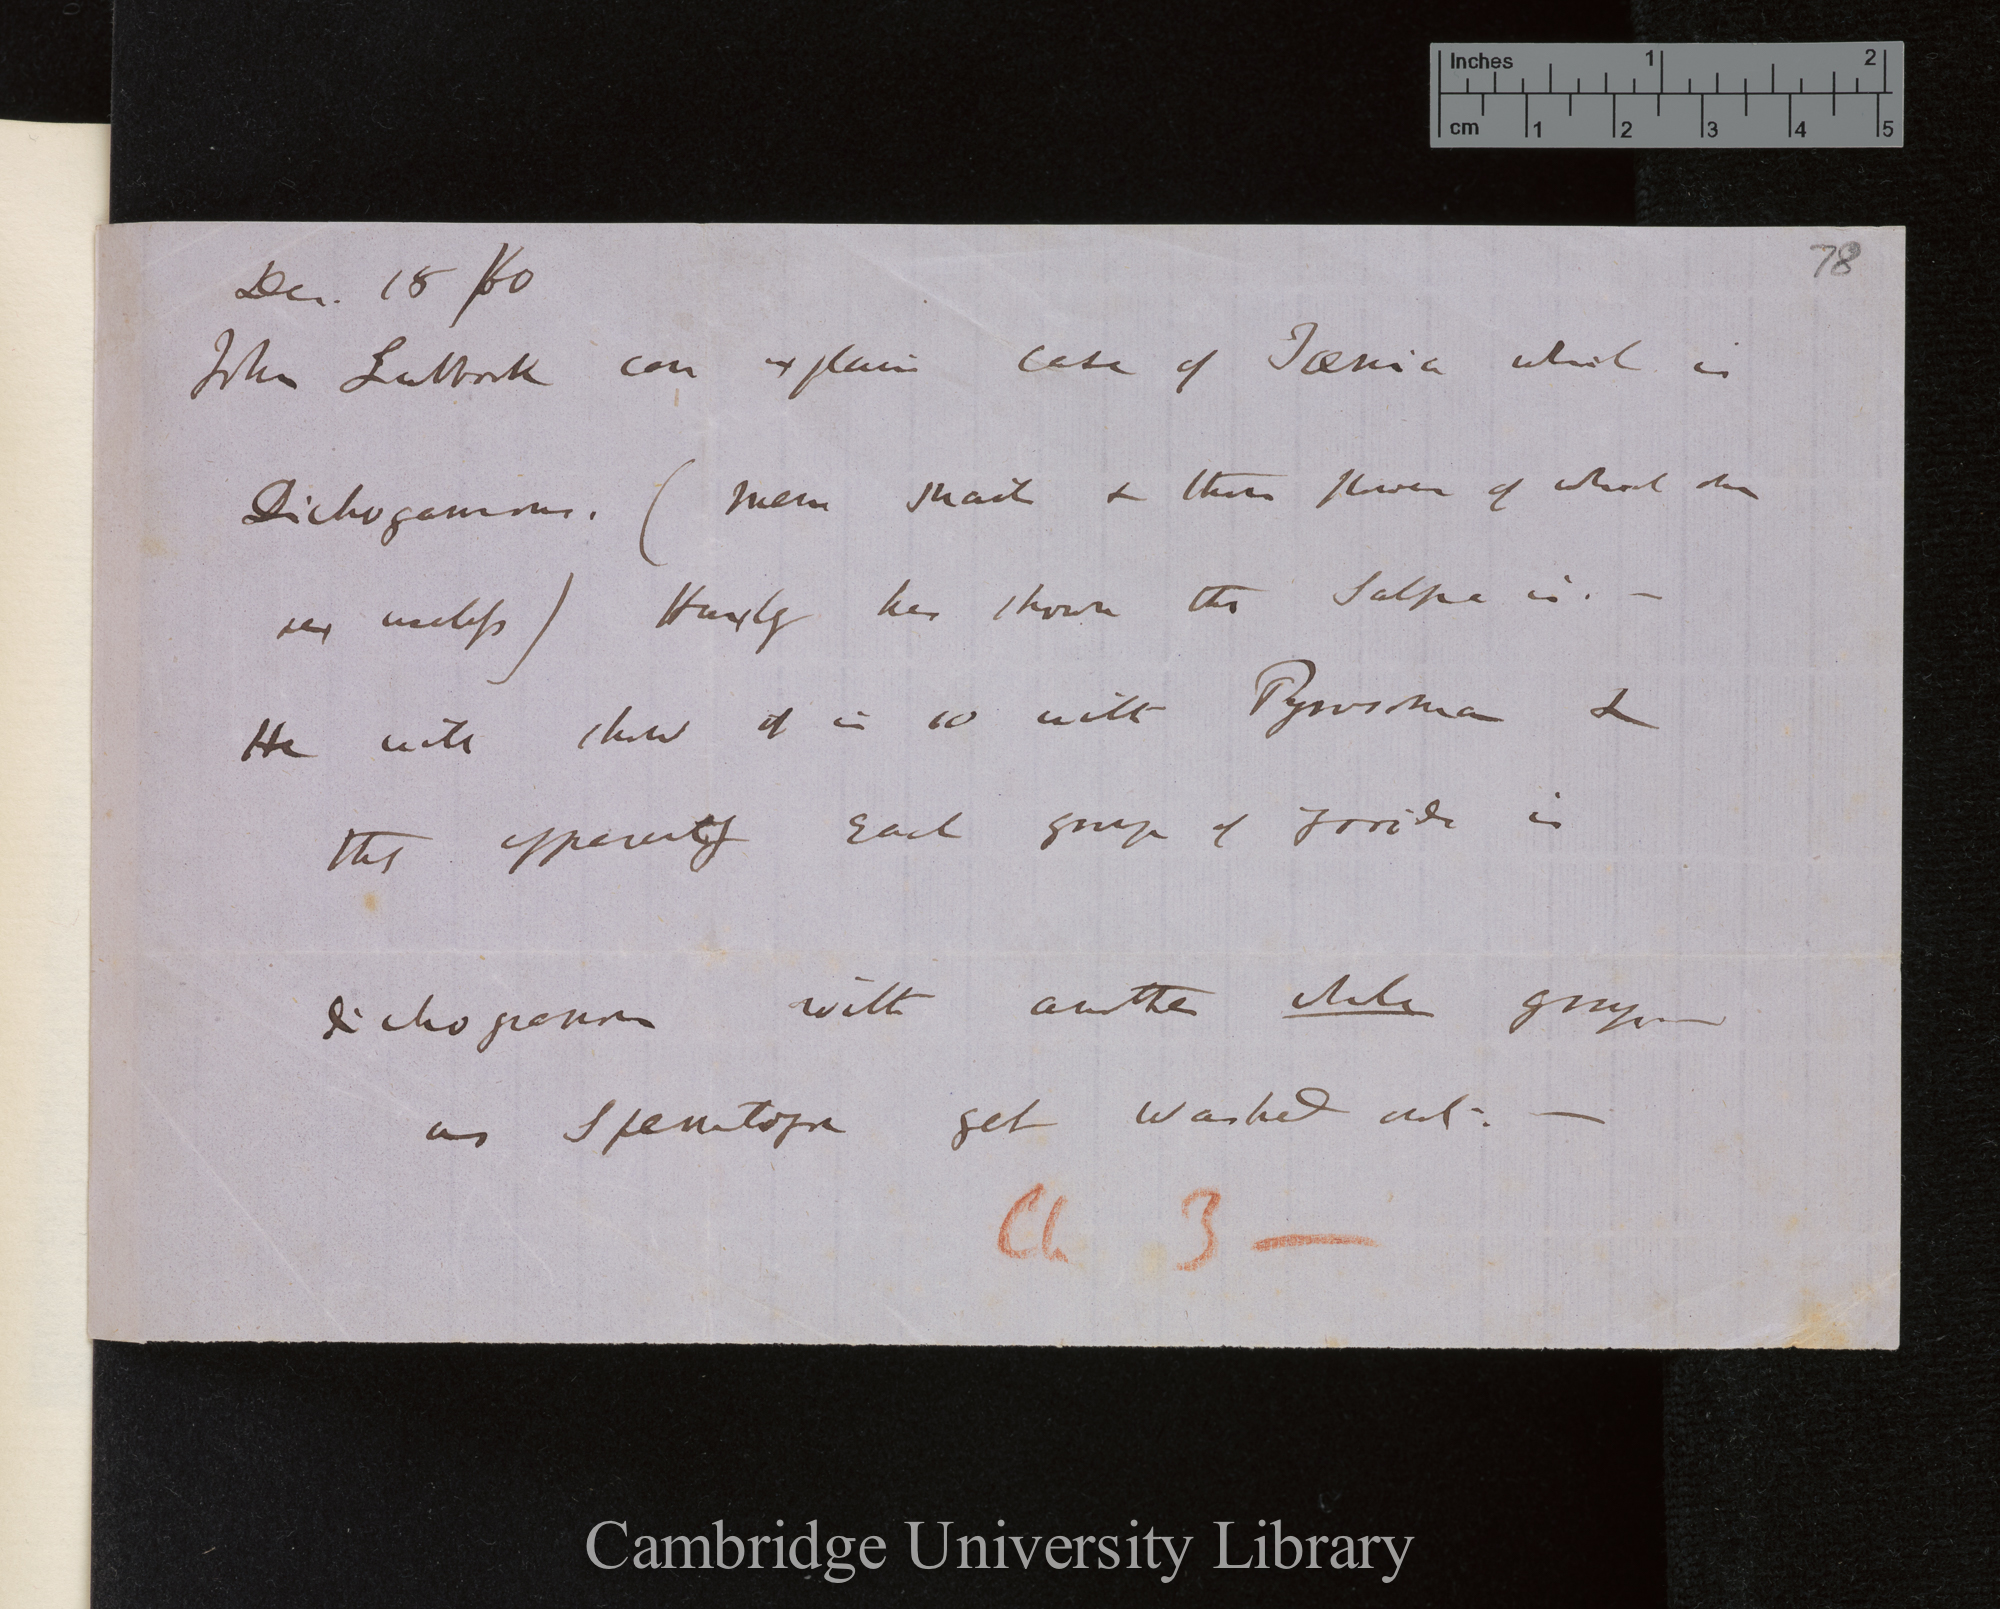 Inches 1 2
cm 1 2 3 4 5
78
Dec. 18 /60
John Lubbock can explain case of Tænia which is
Dichogamous. ( snail & those flowers of which one
sex useless) Huxley has shown this Salpa is. —
He will show if is so with Pyrosoma &
that apparently each group of zooids is
dichogamous with another whole group
as get washed out. —
Ch 3 —
Cambridge University Library